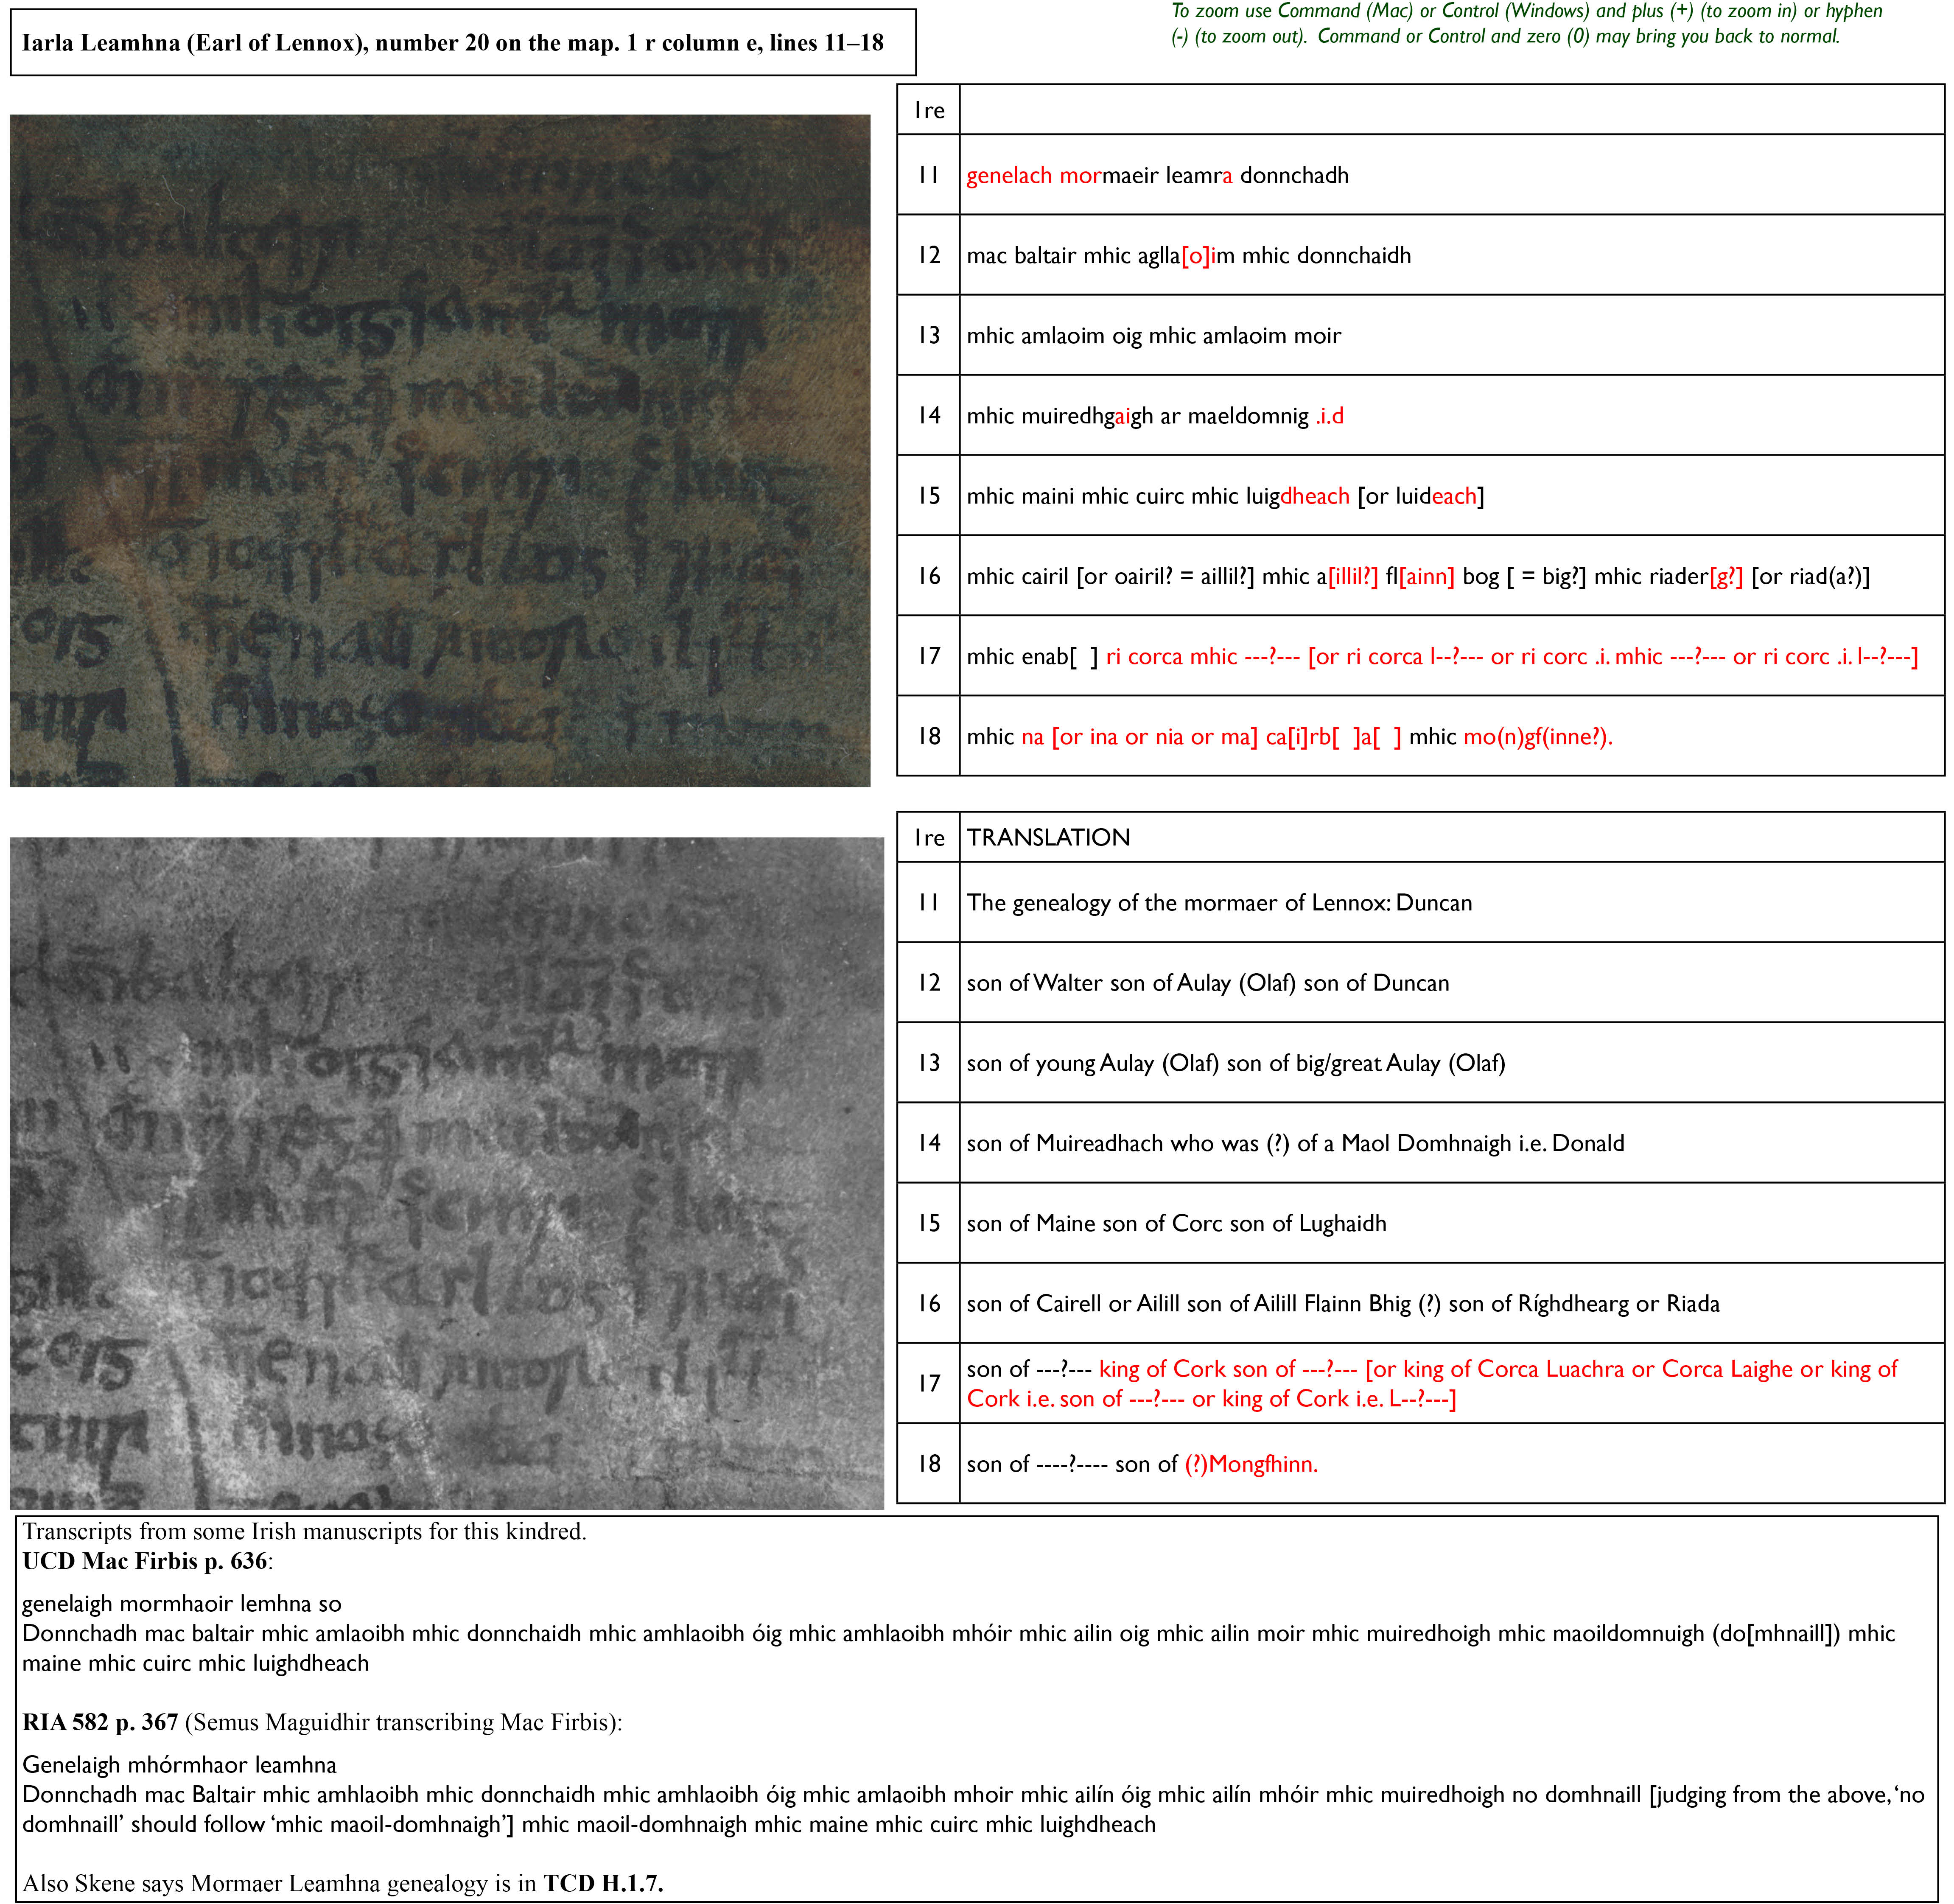 To zoom use Command (Mac) or Control (Windows) and plus (+) (to zoom in) or hyphen
(-) (to zoom out). Command or Control and zero (0) may bring you back to normal.
Iarla Leamhna (Earl of Lennox), number 20 on the map. 1 r column e, lines 11–18
1re
11 genelach mormaeir leamra donnchadh
12 mac baltair mhic aglla[o]im mhic donnchaidh
13 mhic amlaoim oig mhic amlaoim moir
14 mhic muiredhgaigh ar maeldomnig .i.d
15 mhic maini mhic cuirc mhic luigdheach [or luideach]
16 mhic cairil [or oairil? = aillil?] mhic a[illil?] fl[ainn] bog [ = big?] mhic riader[g?] [or riad(a?)]
17 mhic enab[  ] ri corca mhic ---?--- [or ri corca l--?--- or ri corc .i. mhic ---?--- or ri corc .i. l--?---]
18 mhic na [or ina or nia or ma] ca[i]rb[  ]a[  ] mhic mo(n)gf(inne?).
1re TRANSLATION
11 The genealogy of the mormaer of Lennox: Duncan
12 son of Walter son of Aulay (Olaf) son of Duncan
13 son of young Aulay (Olaf) son of big/great Aulay (Olaf)
14 son of Muireadhach who was (?) of a Maol Domhnaigh i.e. Donald
15 son of Maine son of Corc son of Lughaidh
16 son of Cairell or Ailill son of Ailill Flainn Bhig (?) son of Ríghdhearg or Riada
17 son of ---?--- king of Cork son of ---?--- [or king of Corca Luachra or Corca Laighe or king of
Cork i.e. son of ---?--- or king of Cork i.e. L--?---]
18 son of ----?---- son of (?)Mongfhinn.
Transcripts from some Irish manuscripts for this kindred.
UCD Mac Firbis p. 636:
genelaigh mormhaoir lemhna so
Donnchadh mac baltair mhic amlaoibh mhic donnchaidh mhic amhlaoibh óig mhic amhlaoibh mhóir mhic ailin oig mhic ailin moir mhic muiredhoigh mhic maoildomnuigh (do[mhnaill]) mhic
maine mhic cuirc mhic luighdheach
RIA 582 p. 367 (Semus Maguidhir transcribing Mac Firbis):
Genelaigh mhórmhaor leamhna
Donnchadh mac Baltair mhic amhlaoibh mhic donnchaidh mhic amhlaoibh óig mhic amlaoibh mhoir mhic ailín óig mhic ailín mhóir mhic muiredhoigh no domhnaill [judging from the above, ‘no
domhnaill’ should follow ‘mhic maoil-domhnaigh’] mhic maoil-domhnaigh mhic maine mhic cuirc mhic luighdheach
Also Skene says Mormaer Leamhna genealogy is in TCD H.1.7.